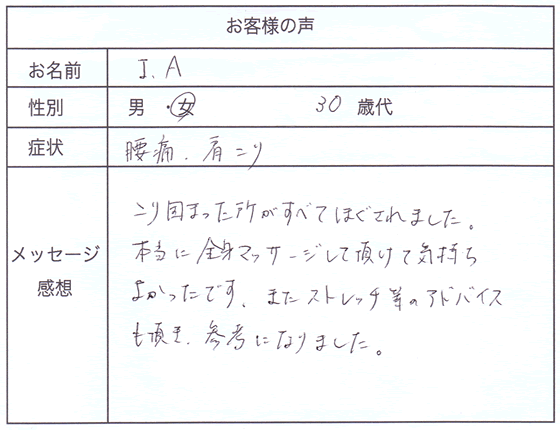 お客様の声
お名前 I.A
性別 男・女 30 歳代
症状 腰痛、肩こり
メッセージ
感想
こり固まった所がすべてほぐされました。
本当に全身マッサージして頂けて気持ち
よかったです、またストレッチ等のアドバイス
も頂き、参考になりました。